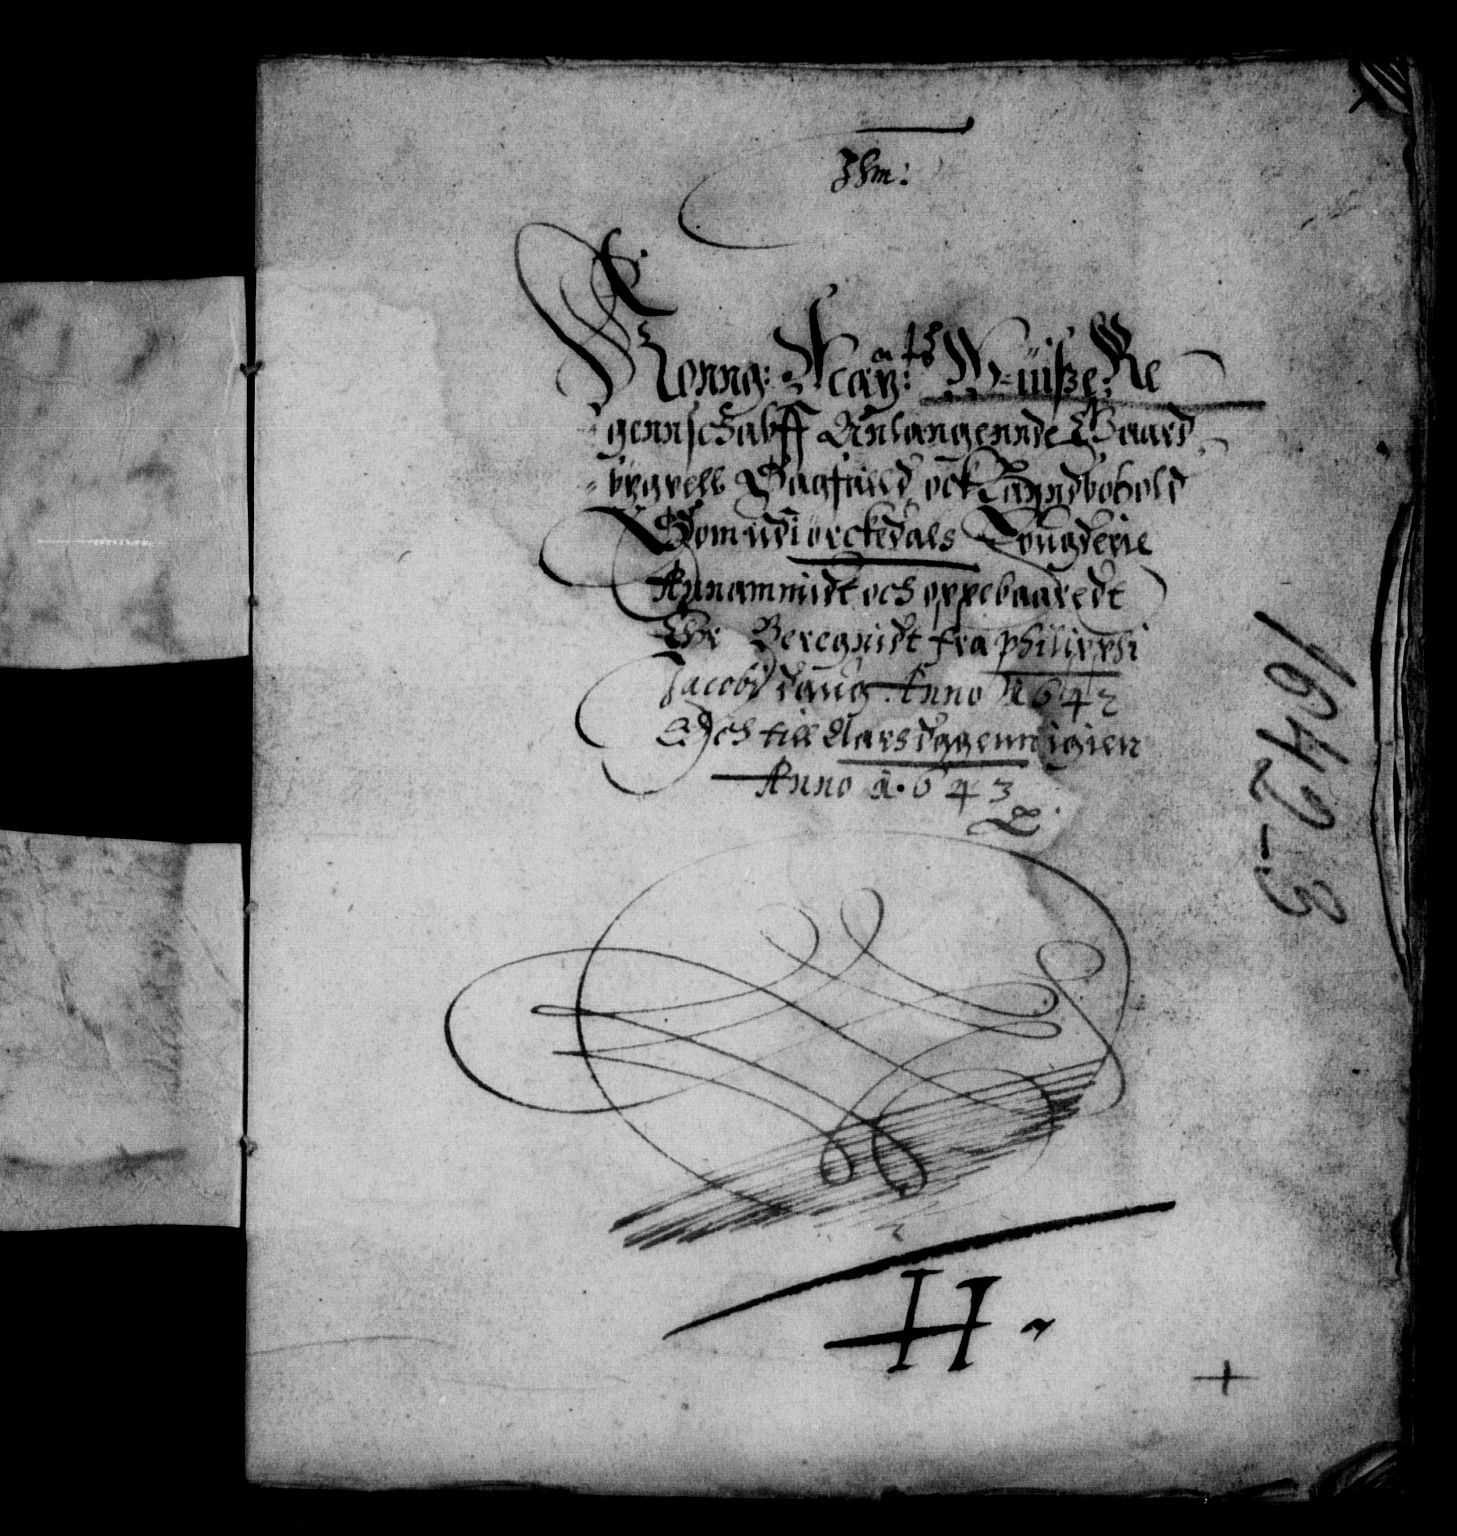 Jhm:
Konng: May:ats Wüisße Re
gennschabff Anlangennde Gaard
bÿgsell Bagfald ock Lanndbohold
Som udi orckedals Fougderie
Annammidt och oppebaaredt
Er Beregnidt fra philippi
Jacobi daug Anno 1642
Och till Aarsdagenn igien
Anno 1643
1642-3
H